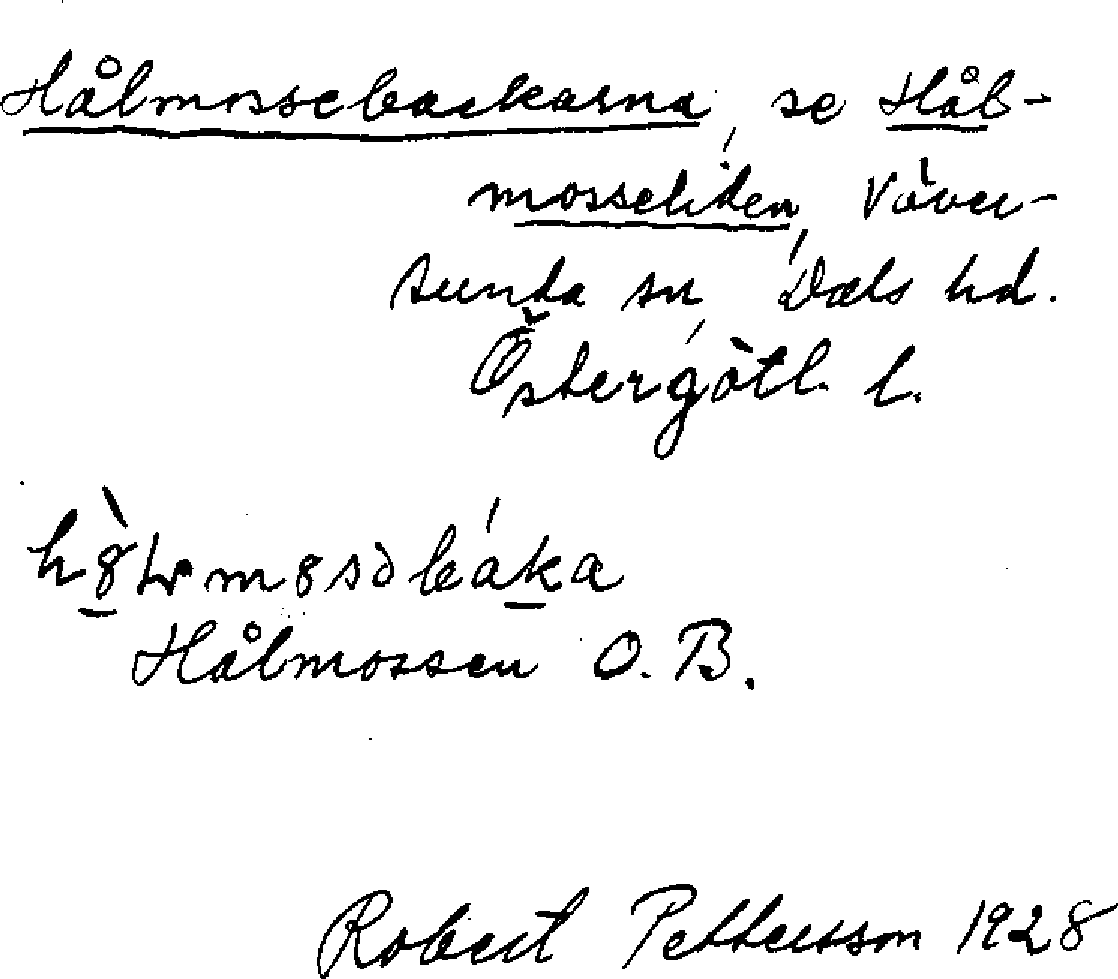 Hålmossebackarna, se Hål-
mosseliden, Väver-
sunda sn, Dals hd.
Östergötl. l.
Hålmossen O. B.
Robert Pettersson 1928